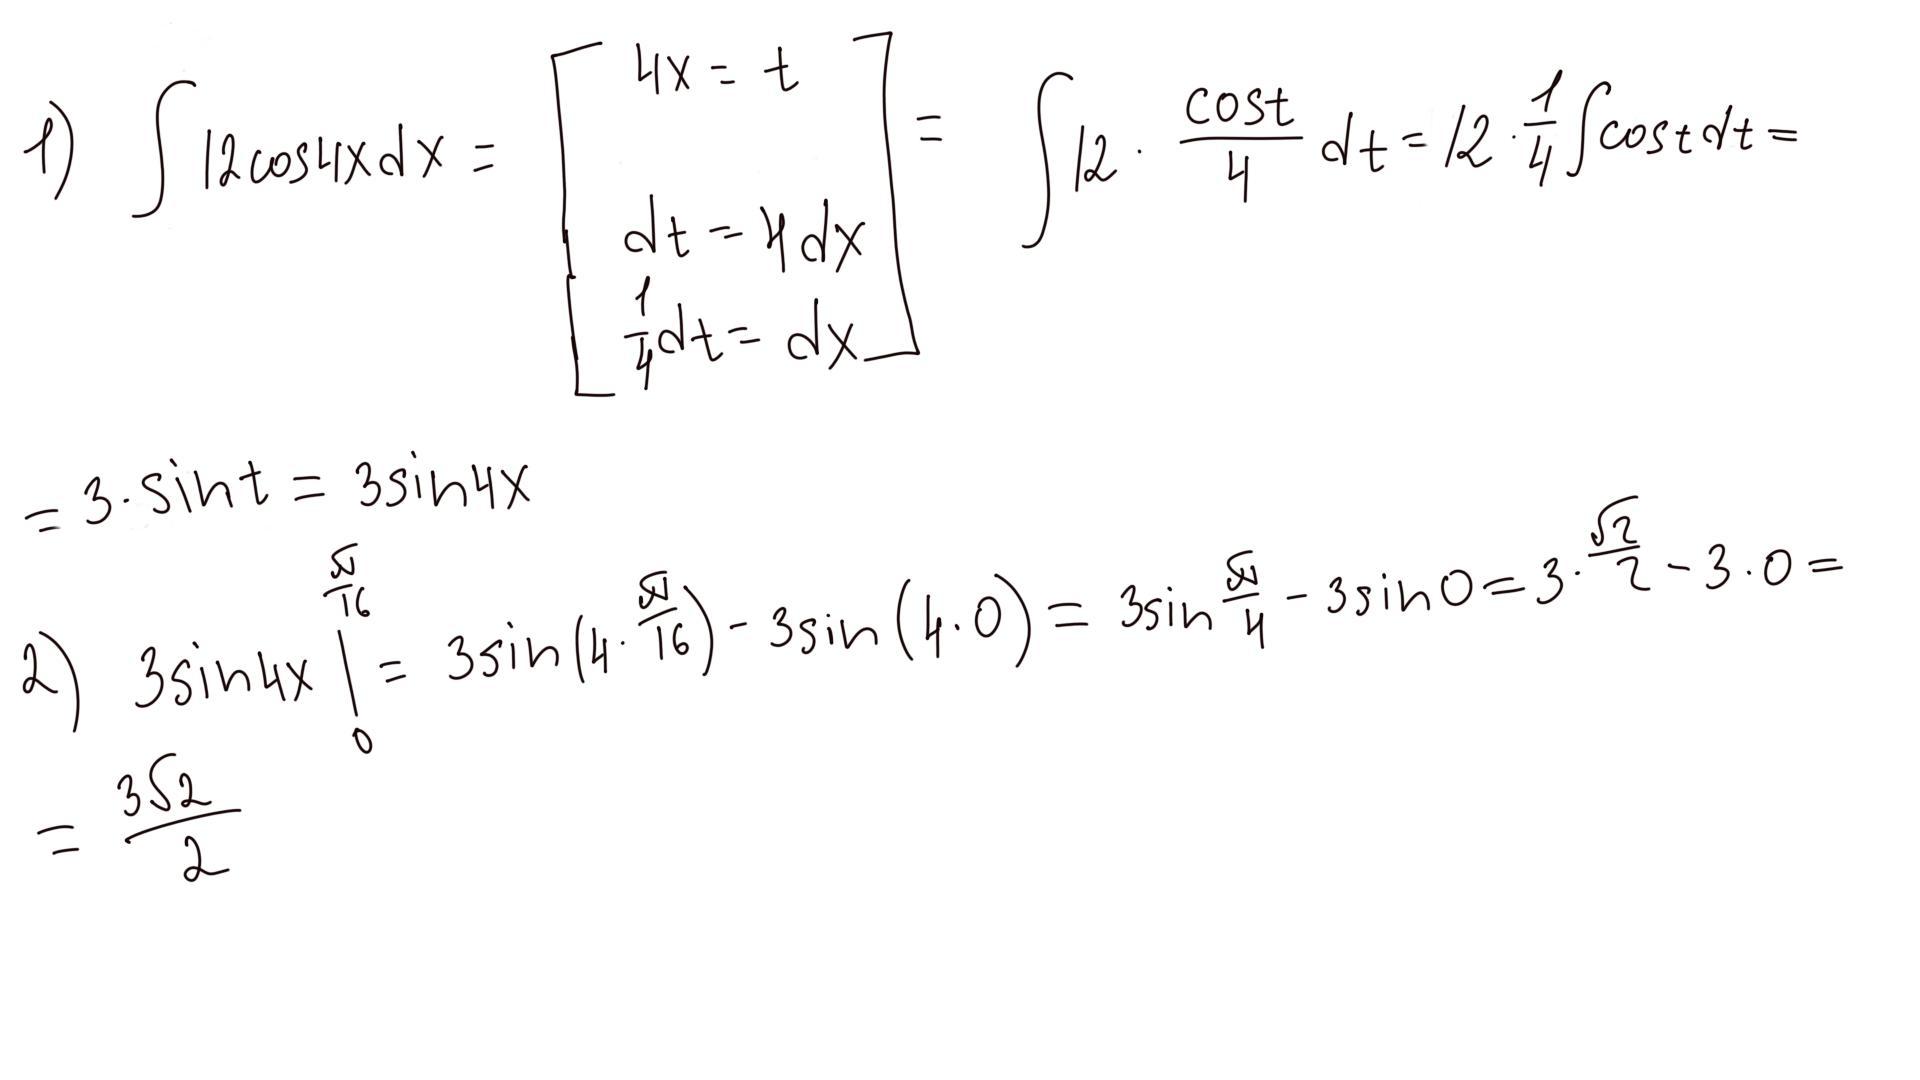 1) ∫12cos4xdx = [4x = t
dt = 4dx
1/4 dt = dx] = ∫12 · cost/4 dt = 12 · 1/4 ∫costdt =
= 3 · sint = 3sin4x
2) 3sin4x |₀^(π/16) = 3sin(4 · π/16) - 3sin(4 · 0) = 3sin π/4 - 3sin0 = 3 · √2/2 - 3 · 0 =
= 3√2/2